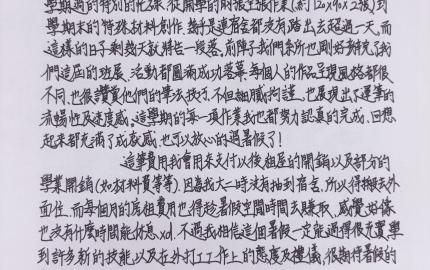 學期週的特別的忙碌，從開學的兩張全張作業(約120x90x2張)到
學期末的特殊材料創作，幾乎是連宿舍都沒有踏出去超過一天，而
這樣的日子剩幾天就將告一段落，前陣子我們系所也剛好辦完了我
們這屆的班展，活動都圓滿成功落幕，每個人的作品呈現風格都很
不同，也很讚賞他們的筆法技巧，不但細膩拘謹，也展現出了運筆的
流暢性及速度感，這學期的每一項作業我也都努力認真的完成，回想
起來都充滿了成就感，也可以放心的過暑假了！
這筆費用我會用來支付以後租屋的開銷以及部分的
學業開銷(如材料費等等)，因為我大二時沒有抽到宿舍，所以得搬去外
面住，而每個月的房租費用也得趁暑假空閒時間去賺取，感覺好像
也沒有什麼時間能休息xd，不過我相信這個暑假一定能過得很充實，學
到許多新的技能，以及在外打工工作上的態度及禮儀，很期待暑假的